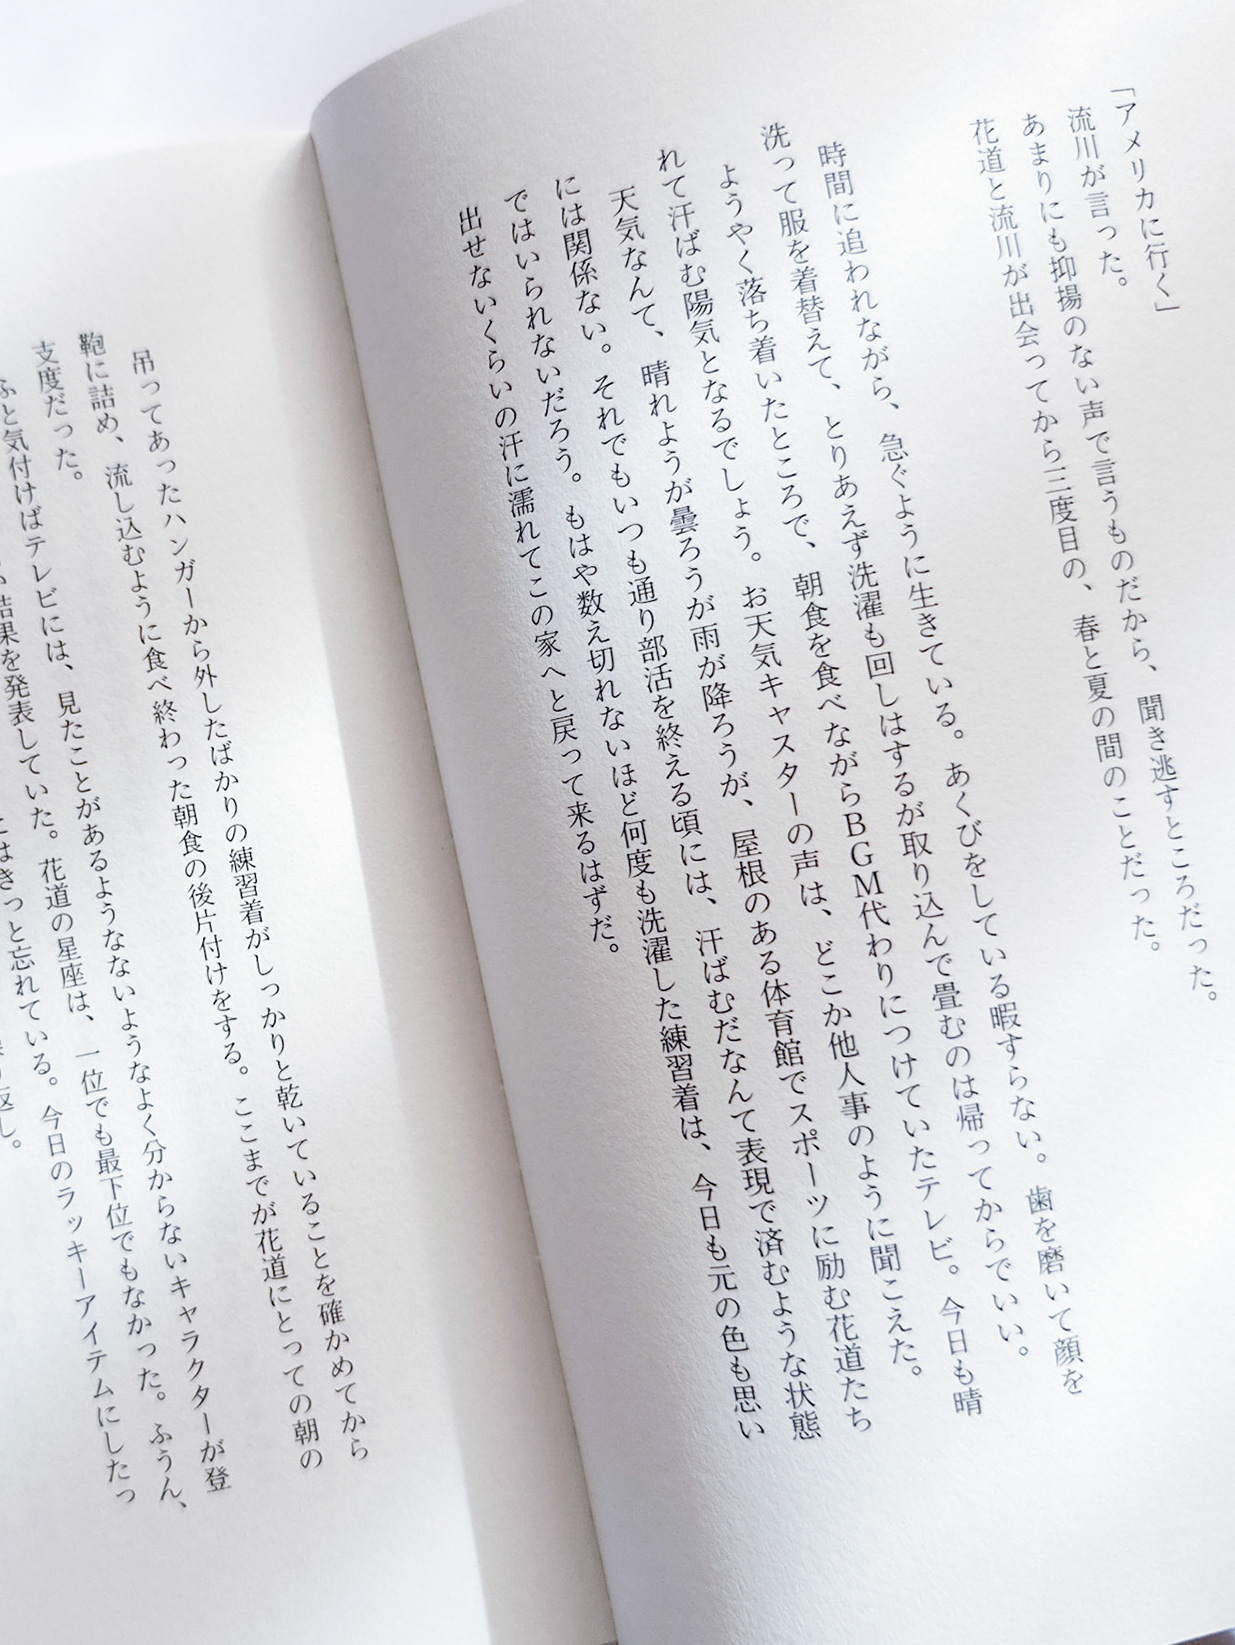 「アメリカに行く」
流川が言った。
あまりにも抑揚のない声で言うものだから、聞き逃すところだった。
花道と流川が出会ってから三度目の、春と夏の間のことだった。
時間に追われながら、急ぐように生きている。あくびをしている暇すらない。歯を磨いて顔を
洗って服を着替えて、とりあえず洗濯も回しはするが取り込んで畳むのは帰ってからでいい。
ようやく落ち着いたところで、朝食を食べながらＢＧＭ代わりにつけていたテレビ。今日も晴
れて汗ばむ陽気となるでしょう。お天気キャスターの声は、どこか他人事のように聞こえた。
天気なんて、晴れようが曇ろうが雨が降ろうが、屋根のある体育館でスポーツに励む花道たち
には関係ない。それでもいつも通り部活を終える頃には、汗ばむだなんて表現で済むような状態
ではいられないだろう。もはや数え切れないほど何度も洗濯した練習着は、今日も元の色も思い
出せないくらいの汗に濡れてこの家へと戻って来るはずだ。
吊ってあったハンガーから外したばかりの練習着がしっかりと乾いていることを確かめてから
鞄に詰め、流し込むように食べ終わった朝食の後片付けをする。ここまでが花道にとっての朝の
支度だった。
ふと気付けばテレビには、見たことがあるようなないようなよく分からないキャラクターが登
結果を発表していた。花道の星座は、一位でも最下位でもなかった。ふうん、
はきっと忘れている。今日のラッキーアイテムにしたっ
返し。